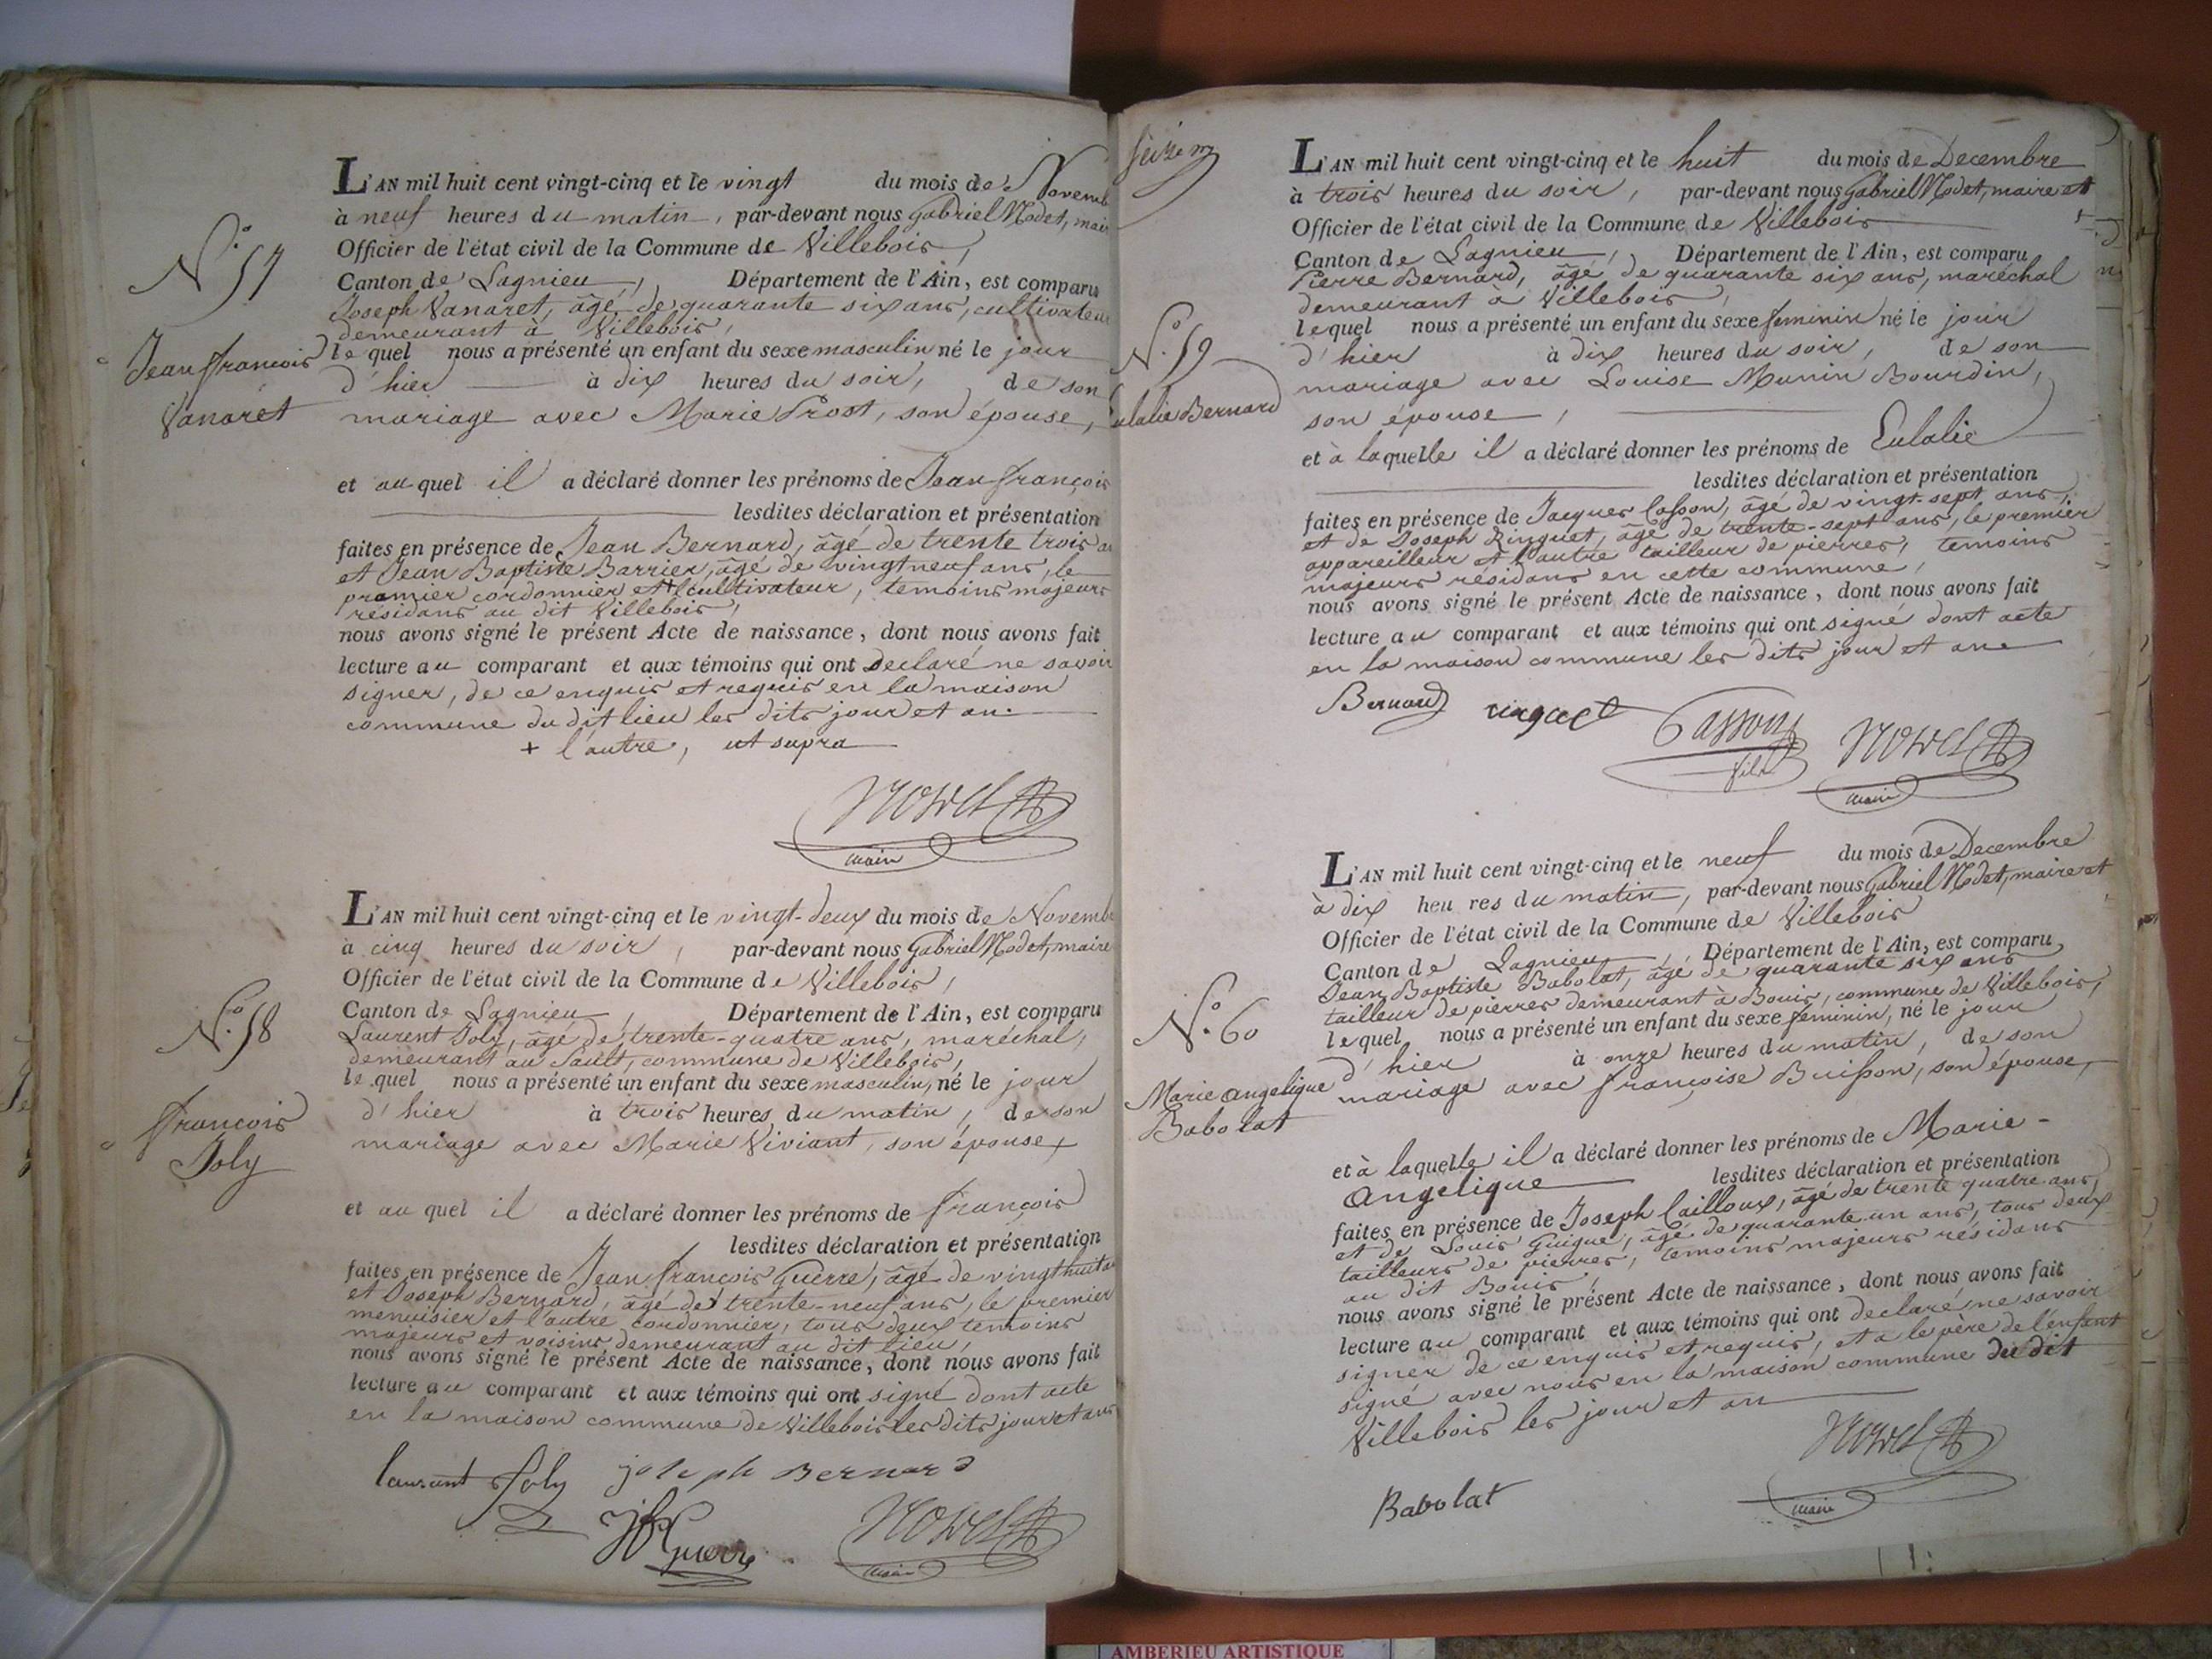 N.° 57
Jean françois
Vanaret
L'AN mil huit cent vingt-cinq et le vingt du mois de Novemb
à neuf heures du matin, par-devant nous Gabriel Nodet, mair
Officier de l'état civil de la Commune de Villebois,
Canton de Lagnieu, Département de l'Ain, est comparu
Joseph Vanaret, âgé de quarante six ans, cultivateur
demeurant à Villebois,
le quel nous a présenté un enfant du sexe masculin né le jour
d'hier à dix heures du soir, de son
mariage avec Marie Prost, son épouse,
et au quel il a déclaré donner les prénoms de Jean françois
lesdites déclaration et présentation
faites en présence de Jean Bernard, âgé de trente trois an
et Jean Baptiste Barrier, âgé de vingt neuf ans, le
premier cordonnier et + cultivateur, temoins majeurs
résidans au dit Villebois,
nous avons signé le présent Acte de naissance, dont nous avons fait
lecture au comparant et aux témoins qui ont declaré ne savoir
signer, de ce enquis et requis en la maison
commune du dit lieu les dits jour et an.
+ l'autre, ut supra
Nodet
maire
N.° 58
françois
Joly
L'AN mil huit cent vingt-cinq et le vingt-deux du mois de Novemb
à cinq heures du soir, par-devant nous Gabriel Nodet, maire
Officier de l'état civil de la Commune de Villebois,
Canton de Lagnieu, Département de l'Ain, est comparu
Laurent Joly, âgé de trente-quatre ans, maréchal,
demeurant au Sault, commune de Villebois,
le quel nous a présenté un enfant du sexe masculin, né le jour
d'hier à trois heures du matin, de son
mariage avec Marie Viviant, son épouse,
et au quel il a déclaré donner les prénoms de françois
lesdites déclaration et présentation
faites en présence de Jean françois Guerre, âgé de vingt huit an
et Joseph Bernard, âgé de trente-neuf ans, le premier
menuisier et l'autre cordonnier, tous deux temoins
majeurs et voisins demeurant au dit lieu,
nous avons signé le présent Acte de naissance, dont nous avons fait
lecture au comparant et aux témoins qui ont signé dont acte
en la maison commune de Villebois les dits jour et an
laurant Joly joseph Bernard
Guerre Nodet
maire
seizem
N.° 59
Eulalie Bernard
L'AN mil huit cent vingt-cinq et le huit du mois de Decembre
à trois heures du soir, par-devant nous Gabriel Nodet, maire et
Officier de l'état civil de la Commune de Villebois
Canton de Lagnieu, Département de l'Ain, est comparu
Pierre Bernard, âgé de quarante six ans, maréchal
demeurant à Villebois,
lequel nous a présenté un enfant du sexe feminin né le jour
d'hier à dix heures du soir, de son
mariage avec Louise Munin Bourdin,
son épouse,
et à laquelle il a déclaré donner les prénoms de Eulalie
lesdites déclaration et présentation
faites en présence de Jacques Casson, âgé de vingt-sept ans,
et de Joseph Ringuet, âgé de trente-sept ans, le premier
appareilleur et l'autre tailleur de pierres, temoins
majeurs résidans en cette commune,
nous avons signé le présent Acte de naissance, dont nous avons fait
lecture au comparant et aux témoins qui ont signé dont acte
en la maison commune les dits jour et an
Bernard ringuet Casson Nodet
fils maire
N.° 60
Marie angelique
Babolat
L'AN mil huit cent vingt-cinq et le neuf du mois de Decembre
à dix heu res du matin, par-devant nous Gabriel Nodet, maire et
Officier de l'état civil de la Commune de Villebois
Canton de Lagnieu, Département de l'Ain, est comparu,
Jean Baptiste Babolat, âgé de quarante six ans
tailleur de pierres demeurant à Bouis, commune de Villebois,
lequel nous a présenté un enfant du sexe féminin, né le jour
d'hier à onze heures du matin, de son
mariage avec françoise Buisson, son épouse,
et à laquelle il a déclaré donner les prénoms de Marie-
Angelique lesdites déclaration et présentation
faites en présence de Joseph Cailloux, âgé de trente quatre ans,
et de Louis Guigue, âgé de quarante un ans, tous deux
tailleurs de pierres, temoins majeurs résidans
au dit Bouis,
nous avons signé le présent Acte de naissance, dont nous avons fait
lecture au comparant et aux témoins qui ont declaré ne savoir
signer de ce enquis et requis, et a le père de l'enfant
signé avec nous en la maison commune du dit
Villebois les jour et an
Nodet
maire
Babolat
AMBERIEU ARTISTIQUE